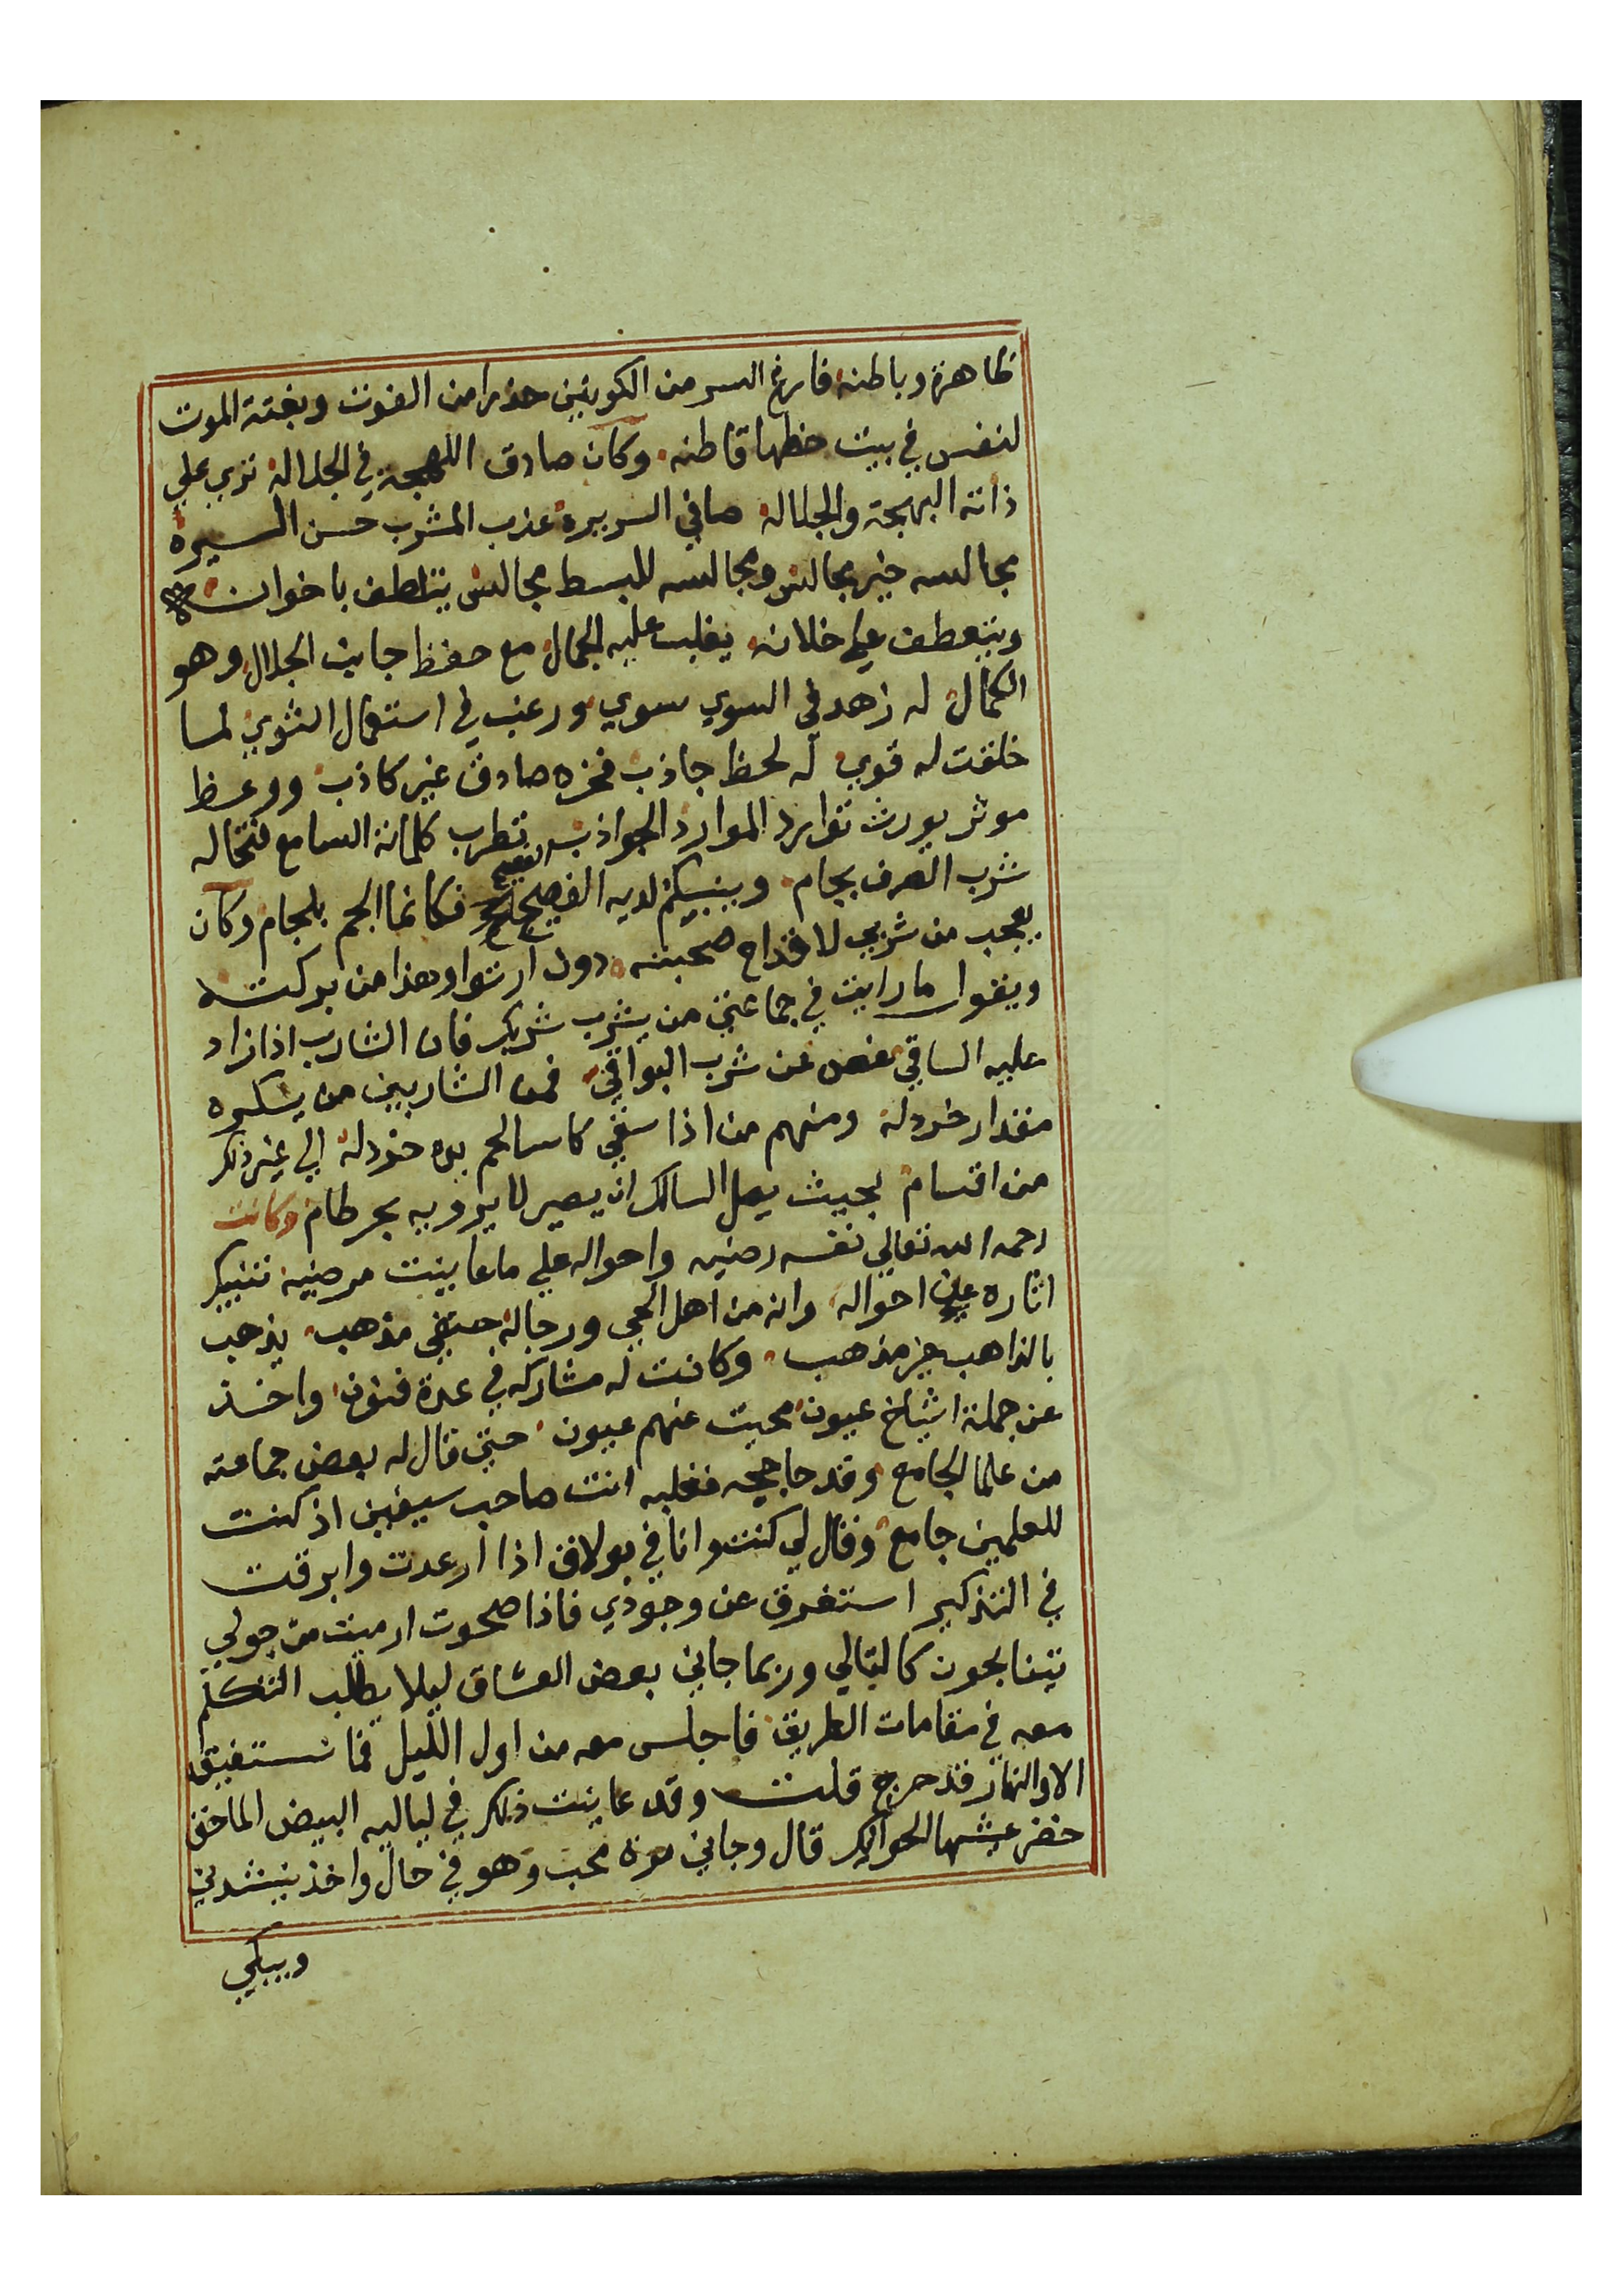 ظاهرة وباطنه فارغ السر من الكونين حذرا من الفوت وبغتة الموت
لنفس في بيت حظها قاطنه وكان صادق اللهجة في الجلاله تري علي
ذاته البهجة والجلاله صافي السريرة عذب المشرب حسن السيرة
مجالسه خير مجالس ومجالسه للبسط مجالس يتلطف باخوانه
ويتعطف علي خلانه يغلب عليه الجمال مع حفظ جانب الجلال وهو
الكمال له زهد في السوي سوي ورغب في استعمال الثوي لما
خلقت له قوي له لحظ جاذب فخره صادق غير كاذب ووعظ
موثر يورث توارد الموارد الجواذب تطرب كلماته السامع فتخاله
شرب الصرف بجام وينبكم لديه الفصيح فكانما الجم بلجام وكان
يعجب من شربي لاقداح صحبته دون ارتوا وهذا من بركته
ويقول ما رايت في جماعتي من يشرب شربك فان الشارب اذا زاد
عليه الساقي غص عن شرب البواقي فمن الشاربين من يسكره
مقدار خردله ومنهم من اذا سقي كاسا لم يره خردله الي غير ذلك
من اقسام بحيث يصل السالك ان يصير لا يرويه بحر طام وكانت
رحمه الله تعالي نفسه رضيه واحواله علي ما عاينت مرضيه تنبيك
اثاره عن احواله وانه من اهل الحجي ورجاله حنفي مذهب يذهب
بالذاهب خير مذهب وكانت له مشاركه في عدة فنون واخذ
عن جملة اشياخ عيون محيت عنهم عيون حتي قال له بعض جماعته
من علما الجامع وقد حاججه فغلبه انت صاحب سيفين اذ كنت
للعلمين جامع وقال لي كنت وانا في بولاق اذا ارعدت وابرقت
في التذكير استغرق عن وجودي فاذا صحوت ارميت من حولي
يتنابحون كالليالي وربما جاني بعض العشاق ليلا يطلب التكلم
معه في مقامات الطريق فاجلس معه من اول الليل فما نستفيق
الا والنهار قد خرج قلت وقد عاينت ذلك في لياليه البيض الماحق
خضر عيشها الحوالك قال وجاني مرة محب وهو في حال واخذ ينشدني
ويبكي